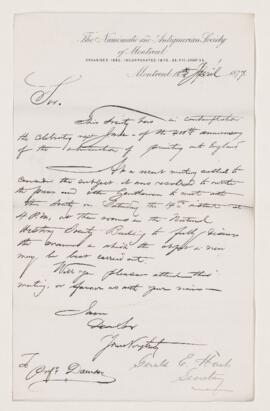 The Numismatic and Antiquarian Society
of Montreal
ORGANISED 1862. INCORPORATED 1870.
Montreal April 1877
Sir,
This Society has in contemplation
the celebration next June of the 400th anniversary
of the introduction of printing into England
At a recent meeting called to
consider the subject it was resolved to invite
the press and other Gentlemen to meet with
the Society on Saturday the 14th instant at
4 P.M. at the rooms in the Natural
History Society Building to fully discuss
the manner in which the object in view
may be best carried out.
Will you please attend this
meeting, or favour us with your views
I am
Dear Sir
Yours Very truly
Gerald E. Hart
Secretary
To
Prof. Dawson